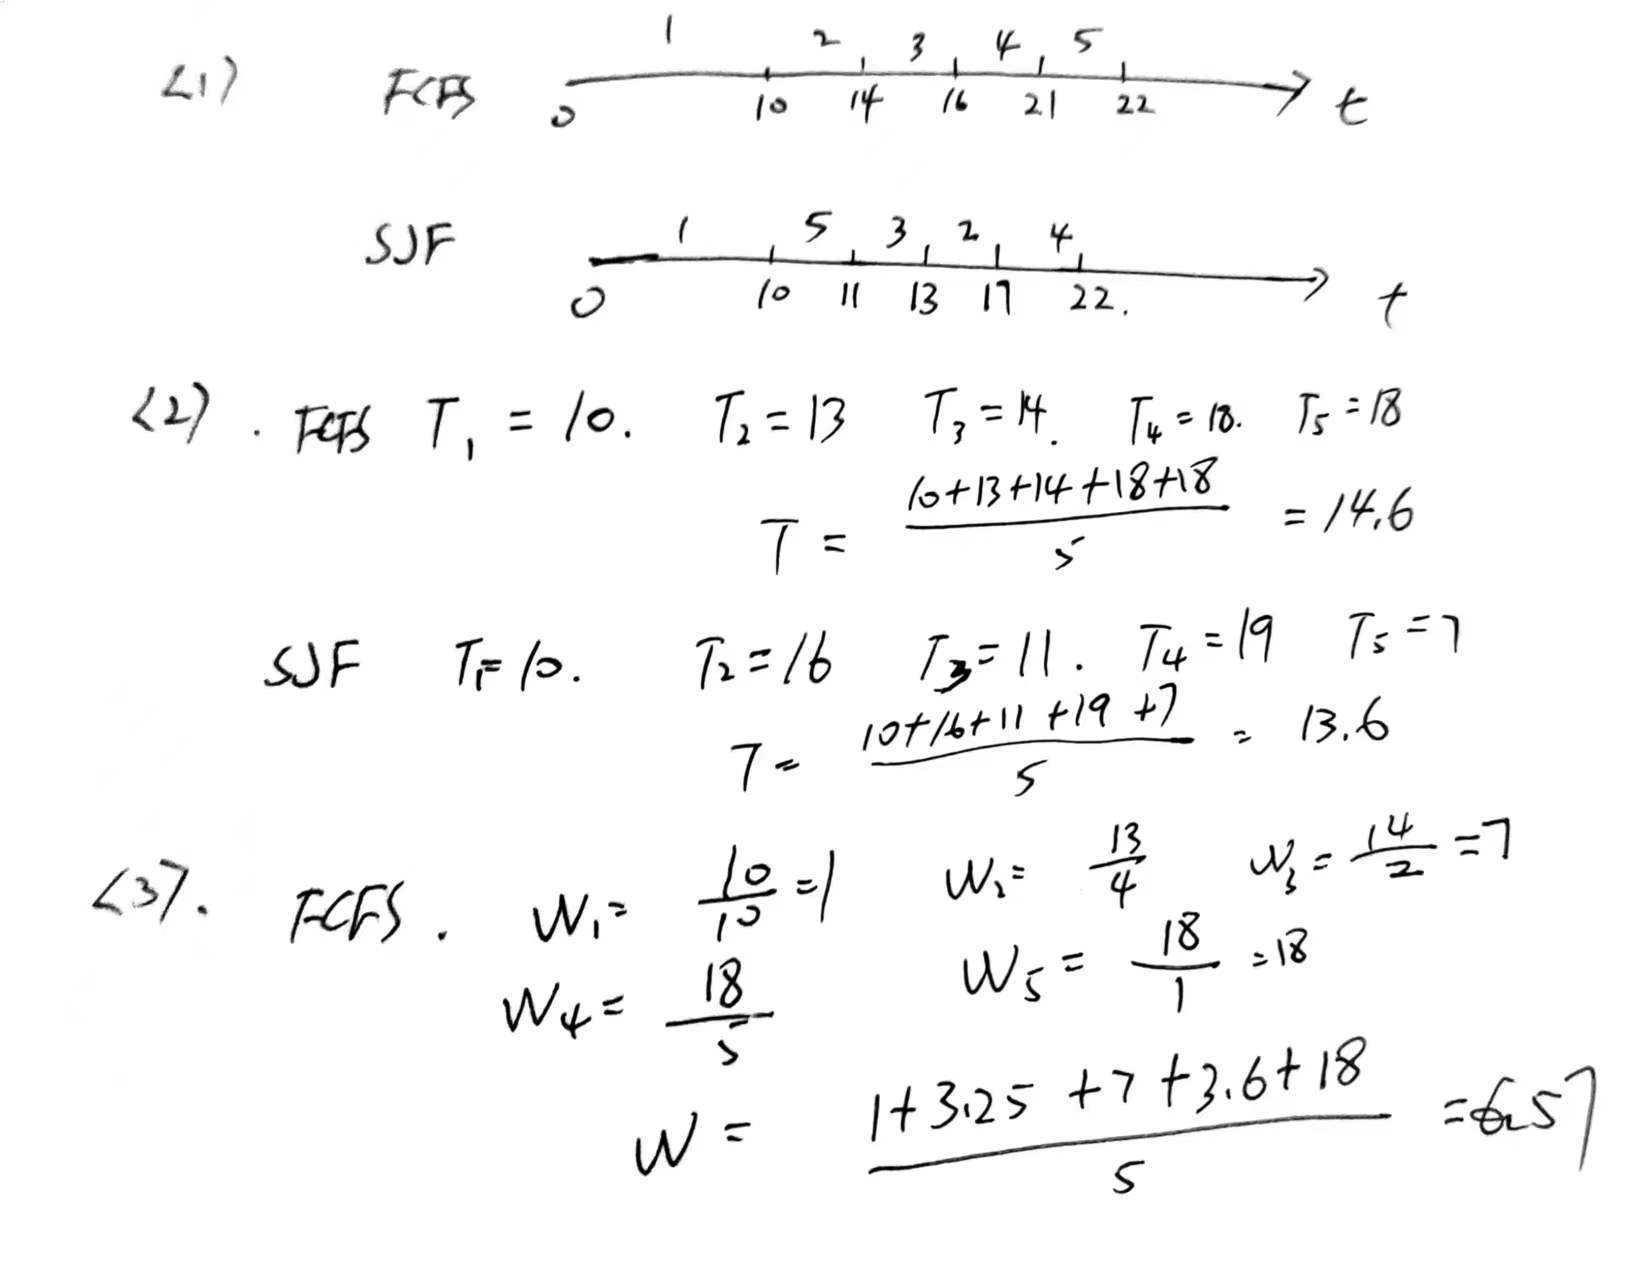 <1> FCFS 1 2 3 4 5
0 10 14 16 21 22 t
SJF 1 5 3 2 4
0 10 11 13 17 22. t
<2>. FCFS T₁ = 10. T₂ = 13 T₃ = 14. T₄ = 18. T₅ = 18
T = (10+13+14+18+18)/5 = 14.6
SJF T₁= 10. T₂ = 16 T₃ = 11. T₄ = 19 T₅ = 7
T = (10+16+11+19+7)/5 = 13.6
<3>. FCFS. W₁ = 10/10 = 1 W₂ = 13/4 W₃ = 14/2 = 7
W₄ = 18/5 W₅ = 18/1 = 18
W = (1+3.25+7+3.6+18)/5 = 6.57